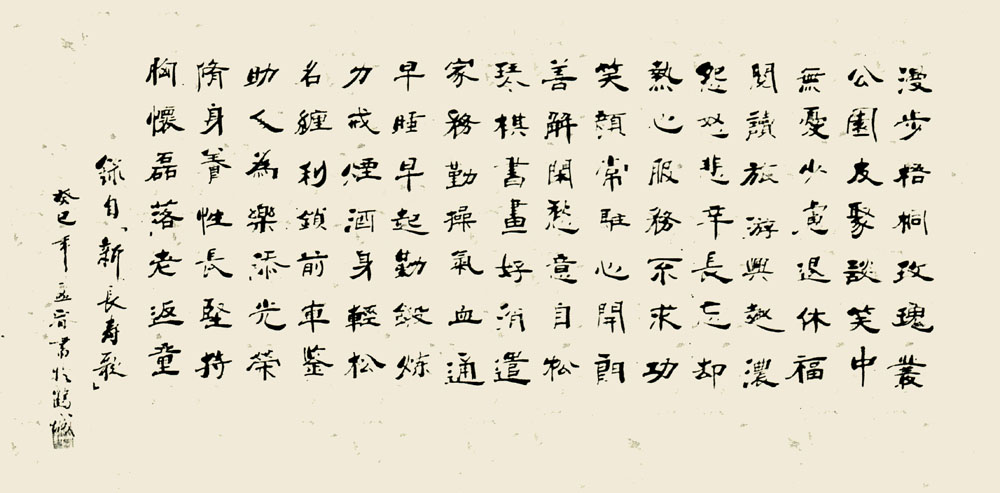 漫步梧桐玫瑰叢
公園友聚談笑中
無憂少慮退休福
閱讀旅游興趣濃
怨怒悲辛長忘却
熱心服務不求功
笑顏常駐心開朗
善解閑愁意自松
琴棋書畫好消遣
家務勤操氣血通
早睡早起勤鍛炼
力戒煙酒身輕松
名纏利鎖前車鉴
助人為樂添光榮
脩身養性長堅持
胸懷磊落老返童
錄自「新長壽歌」
癸巳年 書於鶴城